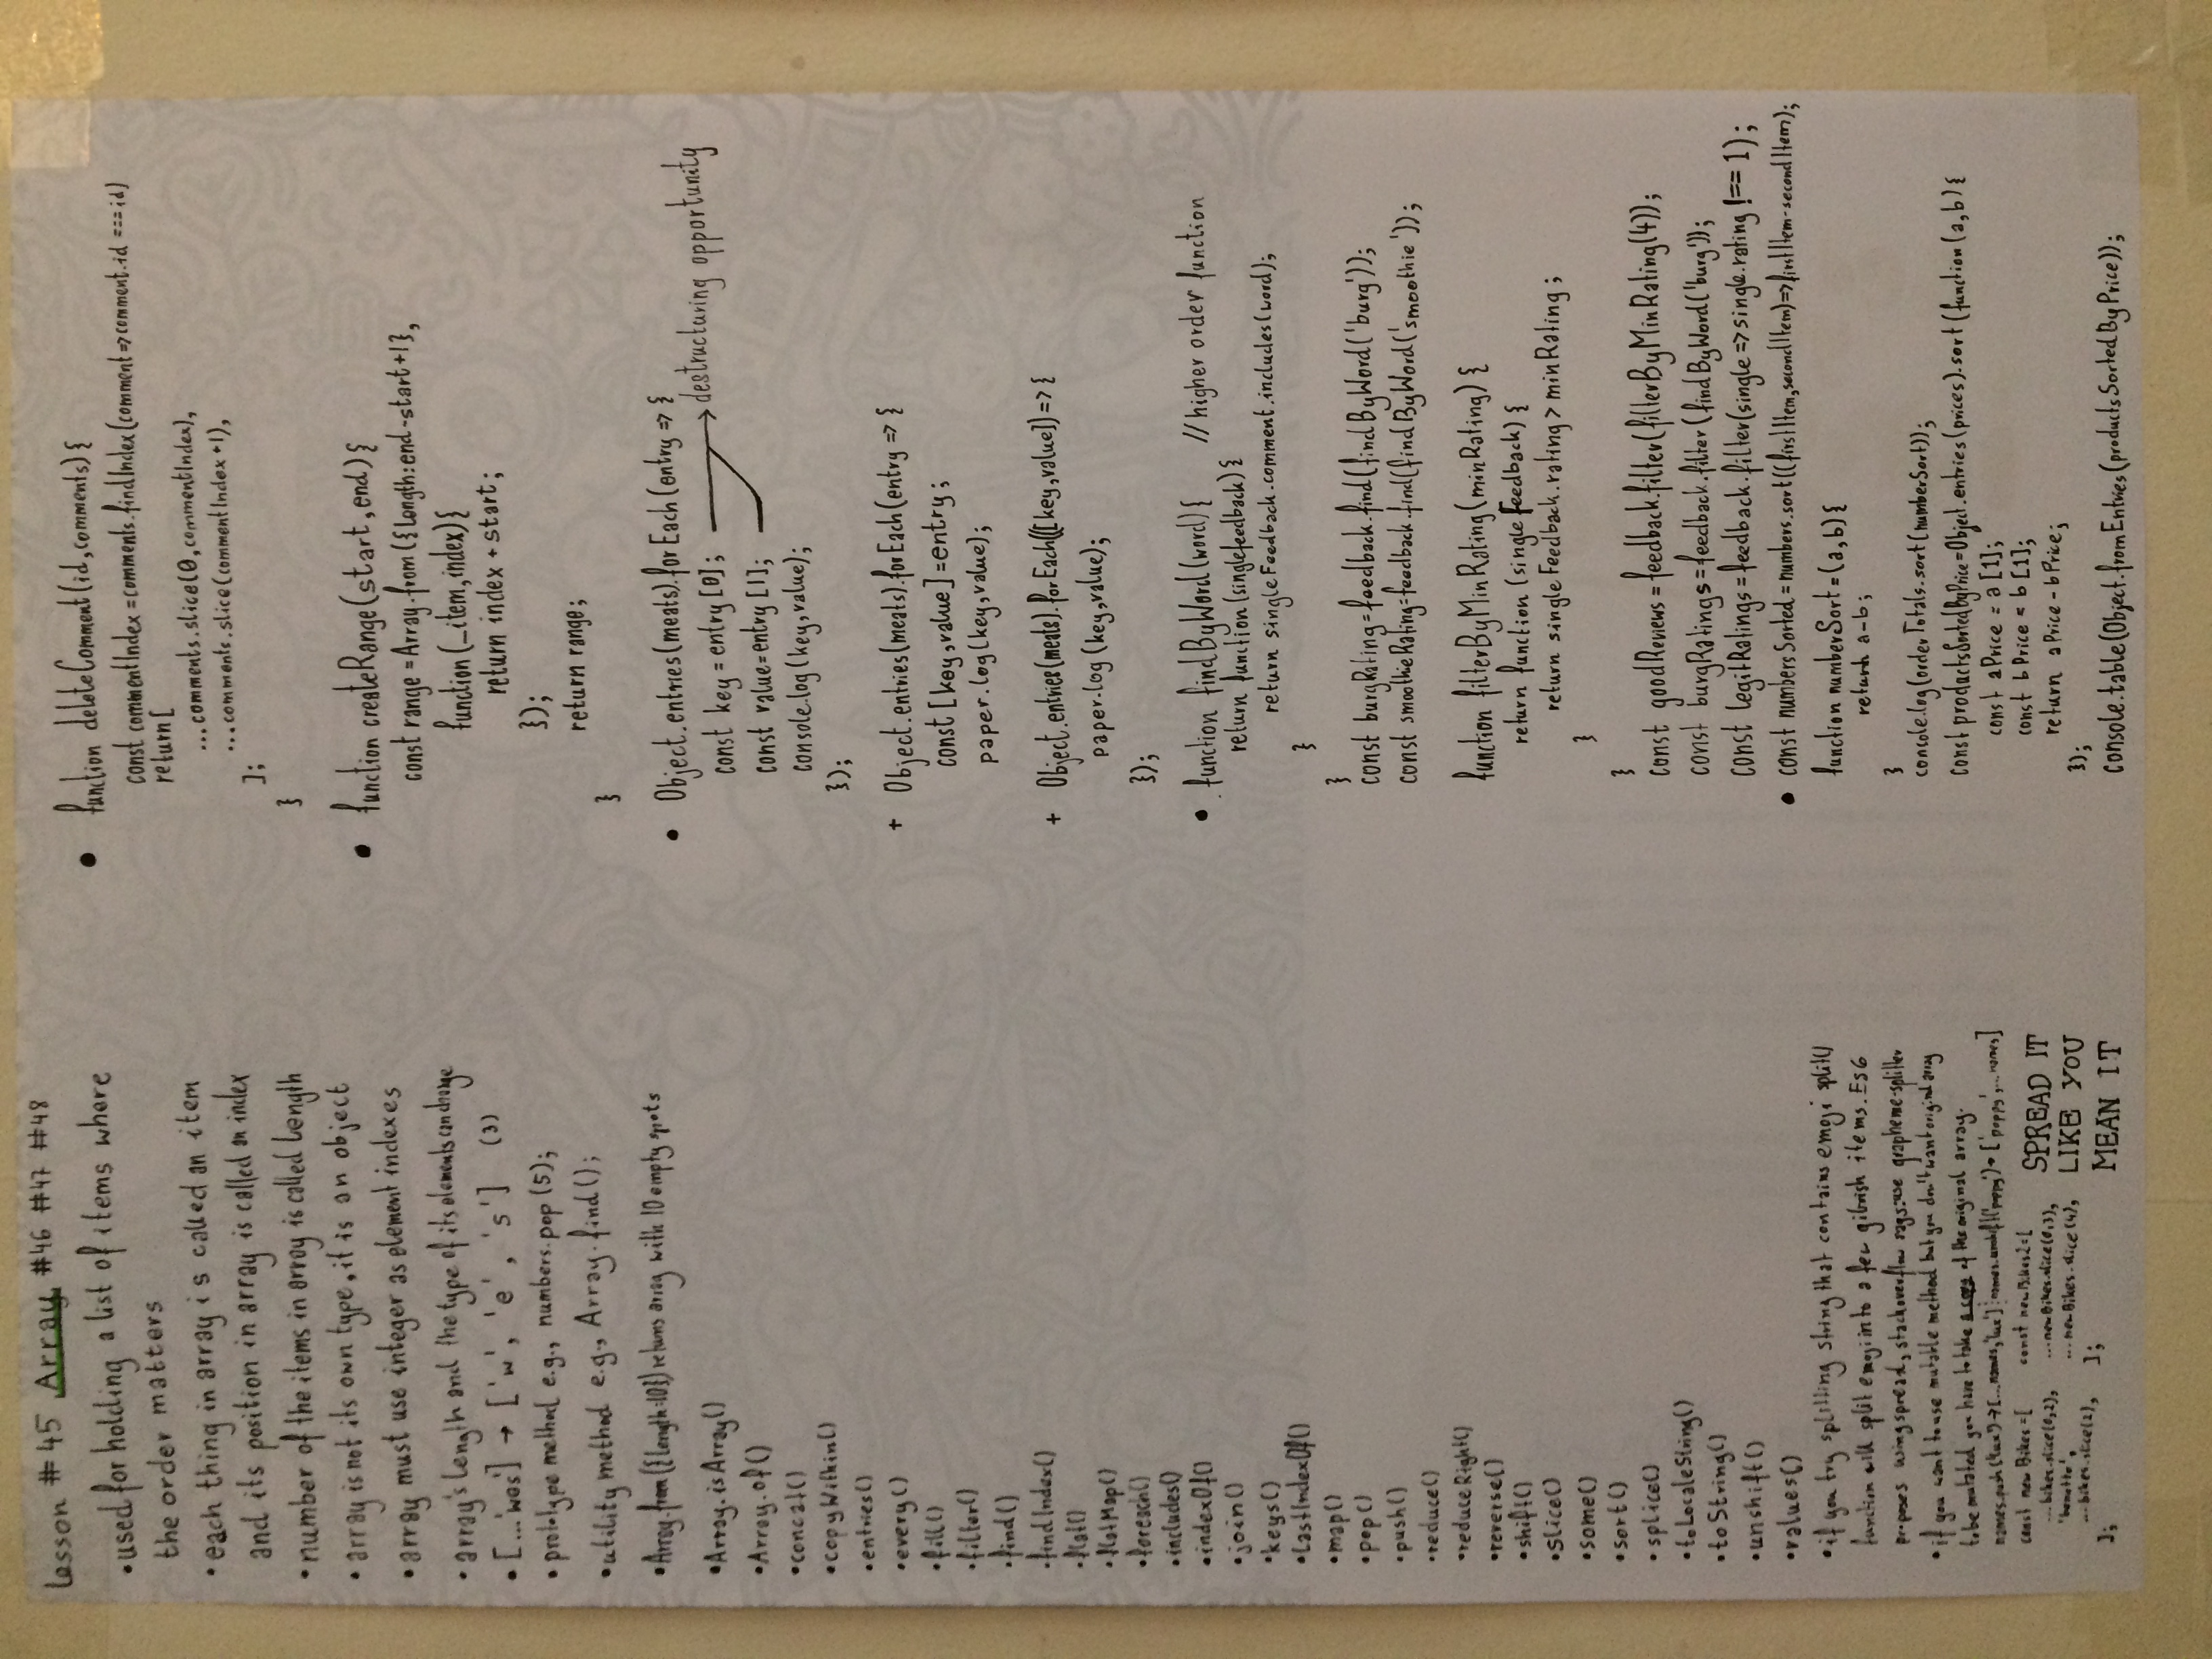 lesson #45 Array #46 #47 #48
• used for holding a list of items where
the order matters
• each thing in array is called an item
and its position in array is called an index
• number of the items in array is called length
• array is not its own type, it is an object
• array must use integer as element indexes
• array's length and the type of its elements can change
• [...'wes'] → ['w', 'e', 's'] (3)
• prototype method e.g., numbers.pop(5);
• utility method e.g., Array.find();
• Array.from({length:10}) returns array with 10 empty spots
• Array.isArray()
• Array.of()
• concat()
• copyWithin()
• entries()
• every()
• fill()
• filter()
• find()
• findIndex()
• flat()
• flatMap()
• foreach()
• includes()
• indexOf()
• join()
• keys()
• lastIndexOf()
• map()
• pop()
• push()
• reduce()
• reduceRight()
• reverse()
• shift()
• slice()
• some()
• sort()
• splice()
• toLocaleString()
• toString()
• unshift()
• values()
• if you try splitting string that contains emoji split()
function will split emoji into a few gibrish items. Es6
proposes using spread, stackoverflow says: use grapheme-splitter
• if you want to use mutable method but you don't want original array
to be mutated you have to take a copy of the original array.
names.push('lux') → [...names,'lux'] names.unshift('poppy') → ['poppy',...names]
const newBikes = [
...bikes.slice(0,2),
'benotto',
...bikes.slice(2),
];
const newBikes2=[
...newBikes.slice(0,3),
...newBikes.slice(4),
];
SPREAD IT
LIKE YOU
MEAN IT
• function deleteComment(id,comments){
const commentIndex = comments.findIndex(comment=>comment.id === id)
return[
...comments.slice(0,commentIndex),
...comments.slice(commentIndex+1),
];
}
• function createRange(start,end){
const range = Array.from({length:end-start+1},
function(_item,index){
return index + start;
});
return range;
}
• Object.entries(meats).forEach(entry => {
const key = entry[0]; → destructuring opportunity
const value = entry[1];
console.log(key,value);
});
+ Object.entries(meats).forEach(entry => {
const [key,value] = entry;
paper.log(key,value);
+ Object.entries(meats).forEach(([key,value]) => {
paper.log(key,value);
});
• function findByWord(word){ //higher order function
return function(singlefeedback){
return singleFeedback.comment.includes(word);
}
}
const burgRating=feedback.find(findByWord('burg'));
const smoothieRating=feedback.find(findByWord('smoothie'));
function filterByMinRating(minRating){
return function (singleFeedback) {
return singleFeedback.rating > minRating;
}
}
const goodReviews = feedback.filter(filterByMinRating(4));
const burgRatings=feedback.filter(findByWord('burg'));
const legitRatings = feedback.filter(single=>single.rating !== 1);
• const numbersSorted = numbers.sort((firstItem,secondItem)=>firstItem-secondItem);
function numberSort = (a,b){
return a-b;
}
concole.log(orderTotals.sort(numberSort));
const productsSortedByPrice=Object.entries(prices).sort(function(a,b){
const aPrice = a[1];
const bPrice = b[1];
return aPrice - bPrice;
});
console.table(Object.fromEntries(productsSortedByPrice));